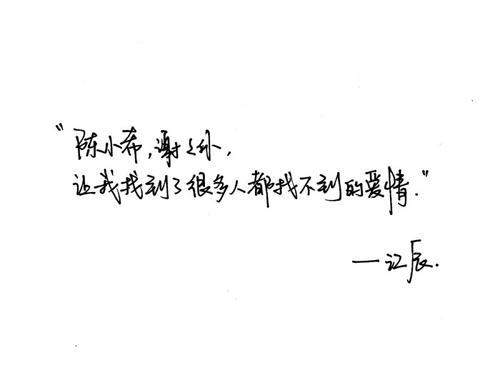 "陈小希,谢谢你,
让我找到了很多人都找不到的爱情."
—江辰.